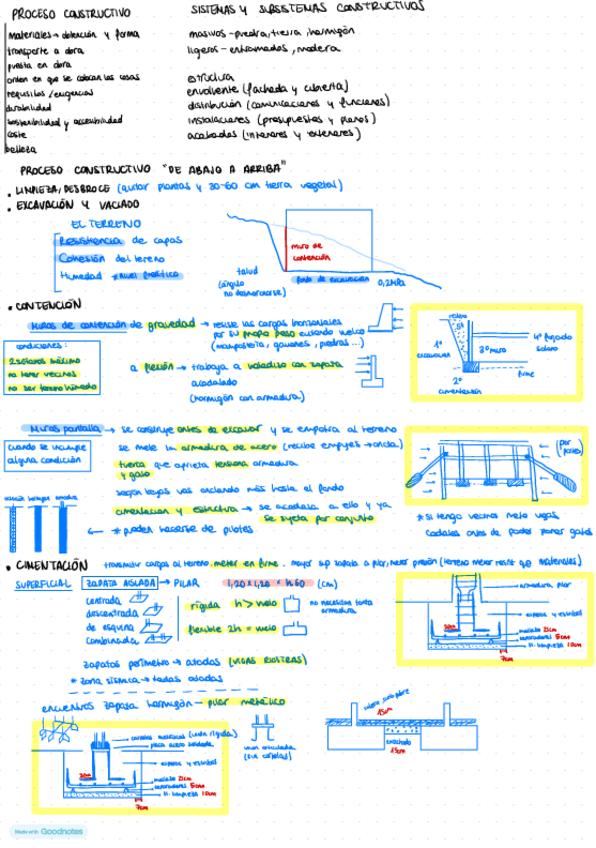 PROCESO CONSTRUCTIVO
materiales → obtención y forma
transporte a obra
puesta en obra
orden en que se colocan las cosas
requisitos / exigencias
durabilidad
sostenibilidad y accesibilidad
coste
belleza
SISTEMAS Y SUBSISTEMAS CONSTRUCTIVOS
masivos - piedra, tierra, hormigón
ligeros - entramados, madera
estructura
envolvente (fachada y cubierta)
distribución (comunicaciones y funciones)
instalaciones (presupuestos y planos)
acabados (interiores y exteriores)
PROCESO CONSTRUCTIVO "DE ABAJO A ARRIBA"
• LIMPIEZA, DESBROCE (quitar plantas y 30-60 cm tierra vegetal)
• EXCAVACIÓN Y VACIADO
EL TERRENO
Resistencia de capas
Cohesión del terreno
Humedad * nivel freático
talud
(ángulo
no desmoronarse)
muro de
contención
fondo de excavación
0,2MPa
• CONTENCIÓN
Muros de contención de gravedad → resiste las cargas horizontales
por su propio peso evitando vuelco
(mampostería, gaviones, piedras...)
condiciones:
2 sótanos máximo
no tener vecinos
no ser terreno húmedo
a flexión → trabaja a voladizo con zapata
acodalado
(hormigón con armadura)
relleno
5º
1º
excavación
3º muro
4º forjado
solera
2º
cimentación
firme
Muros pantalla → se construye antes de excavar y se empotra al terreno
cuando se incumple
alguna condición
se mete la armadura de acero (recibe empujes → ancla)
tuerca que aprieta tensiona armadura
y gato
según bajas vas anclando más hasta el fondo
cimentación y estructura → se acodala a ello y ya
se sujeta por conjunto
← * pueden hacerse de pilotes
(por
fases)
* si tengo vecinos meto vigas
codales antes de poder poner gatos
• CIMENTACIÓN
transmitir cargas al terreno, meter en firme. mayor sup zapata a pilar, menor presión (terreno menor resist que materiales)
SUPERFICIAL
ZAPATA AISLADA → PILAR
1,20 x 1,20 x h 60 (cm)
centrada
descentrada
de esquina
combinada
rígida h > vuelo
no necesitan tanta
armadura
flexible 2h = vuelo
armadura pilar
esperas y estribos
30cm
mallazo 21cm
separadores 5cm
H. limpieza 10cm
7cm
zapatas perímetro → atadas (VIGAS RIOSTRAS)
* zona sísmica → todas atadas
encuentros zapata hormigón → pilar metálico
cartelas metálicas (unión rígida)
placa acero soldada
esperas y estribos
30cm
mallazo 21cm
separadores 5cm
H. limpieza 10cm
7cm
unión articulada
(sin cartelas)
15cm
encachado
15cm
Made with Goodnotes